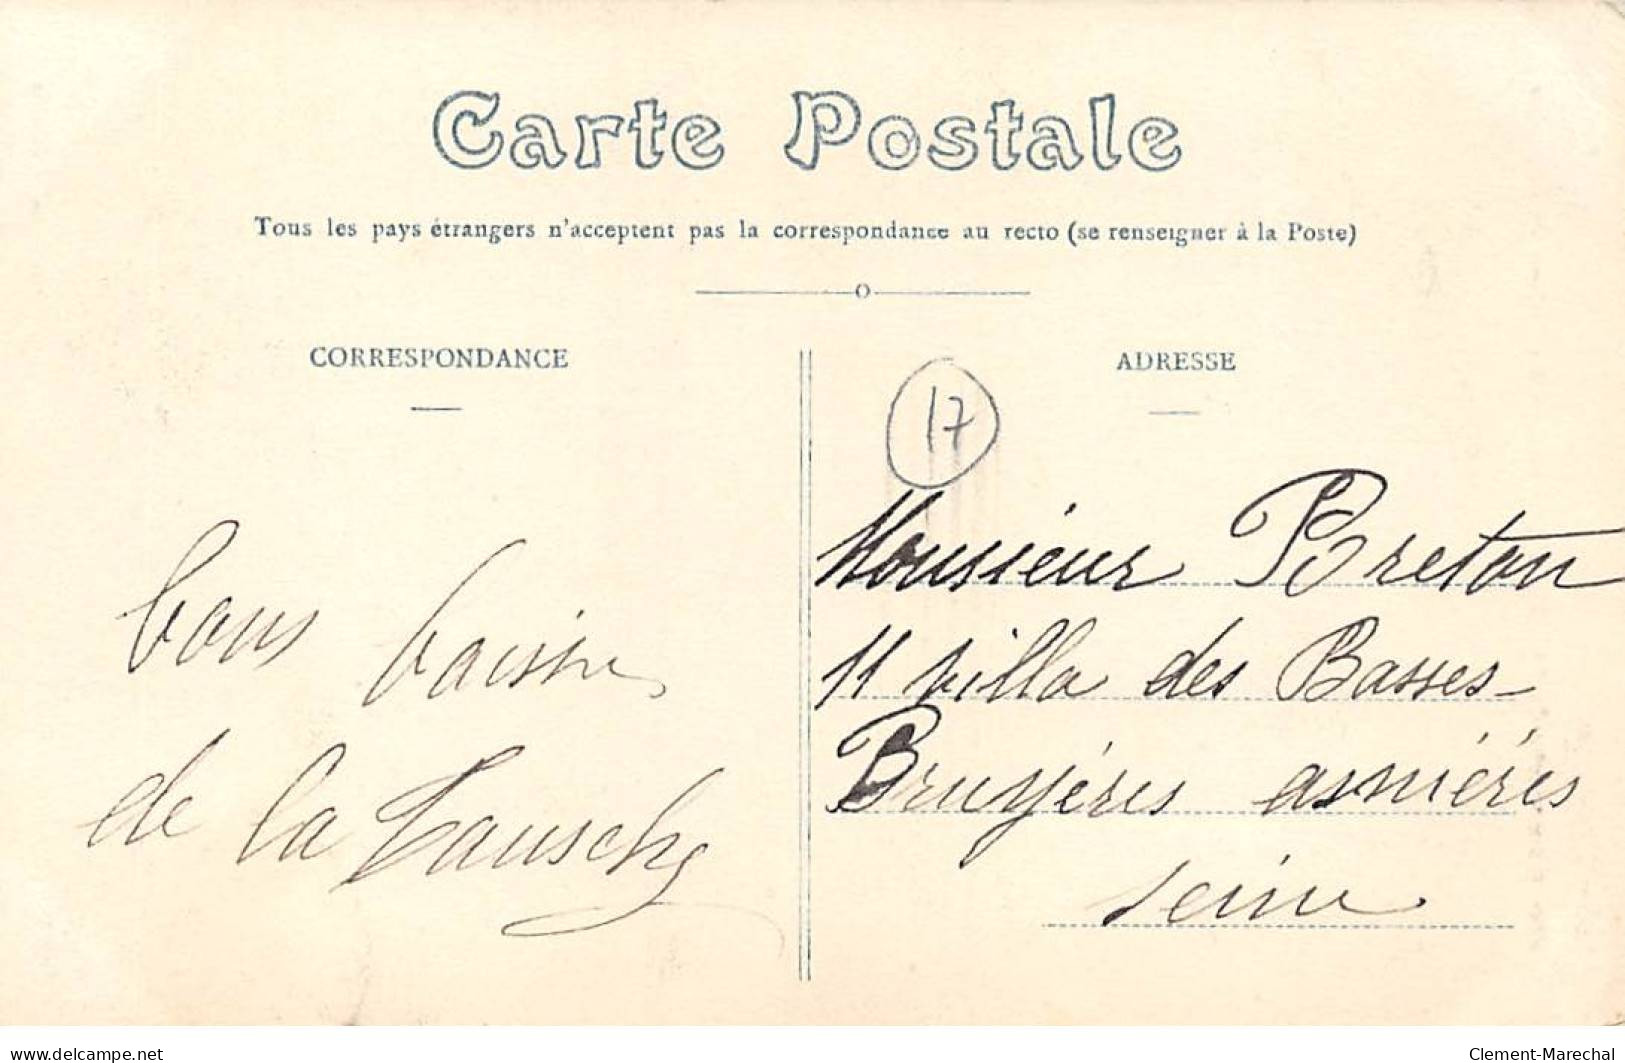 Carte Postale
Tous les pays étrangers n'acceptent pas la correspondance au recto (se renseigner à la Poste)
CORRESPONDANCE
bons baisers
de la
ADRESSE
17
Monsieur Breton
11 villa des Basses-
Bruyéres asniéres
Seine
www.delcampe.net
Clement-Marechal